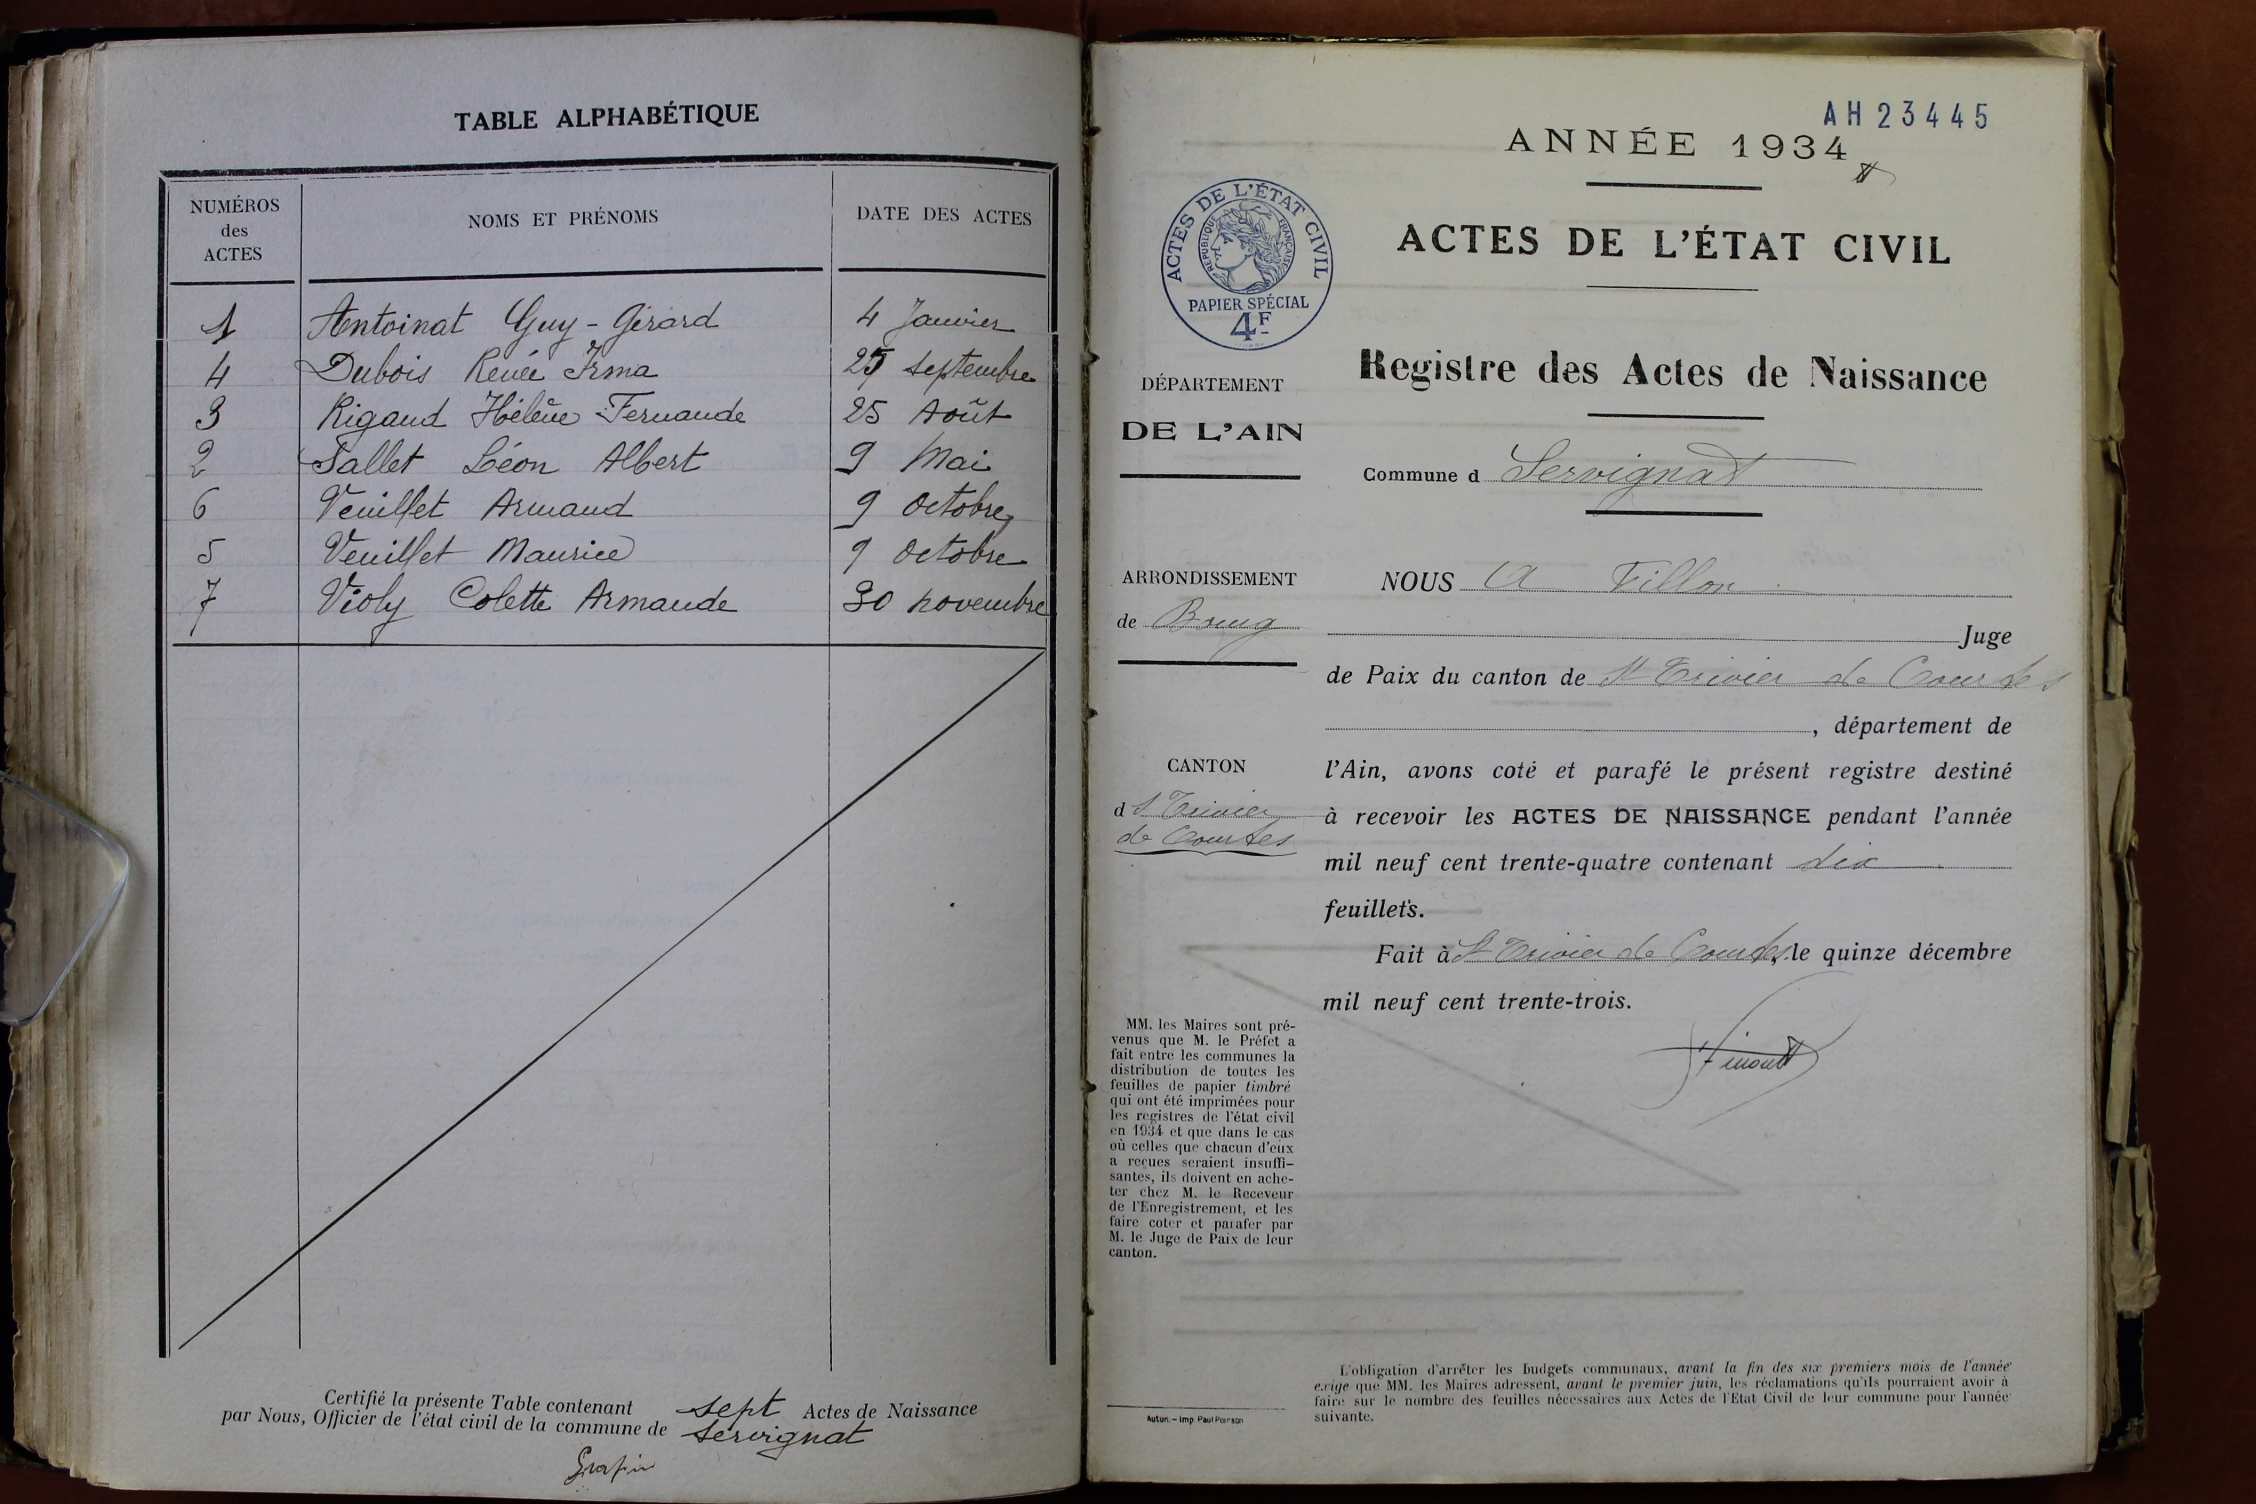 TABLE ALPHABÉTIQUE
NUMÉROS des ACTES NOMS ET PRÉNOMS DATE DES ACTES
1 Antoinat Guy-Gérard 4 Janvier
4 Dubois Renée Irma septembre
3 Rigaud Hélène Fernande 25 Août
2 Sallet Léon Albert 9 Mai
6 Veuillet Armand 9 Octobre
5 Veuillet Maurice 9 Octobre
7 Violy Colette Armande 30 novembre
Certifié la présente Table contenant sept Actes de Naissance
par Nous, Officier de l'état civil de la commune de Servignat
AH23445
ANNÉE 1934
ACTES DE L'ÉTAT CIVIL
RÉPUBLIQUE FRANÇAISE
PAPIER SPÉCIAL
4F
ACTES DE L'ÉTAT CIVIL
Registre des Actes de Naissance
DÉPARTEMENT
DE L'AIN
Commune d Servignat
ARRONDISSEMENT
de Bourg
NOUS A Fillon
Juge
de Paix du canton de St Trivier de Courtes
, département de
CANTON
d St Trivier
de Courtes
l'Ain, avons coté et parafé le présent registre destiné
à recevoir les ACTES DE NAISSANCE pendant l'année
mil neuf cent trente-quatre contenant dix
feuillets.
Fait à St Trivier de Courtes, le quinze décembre
mil neuf cent trente-trois.
MM. les Maires sont pré-
venus que M. le Préfet a
fait entre les communes la
distribution de toutes les
feuilles de papier timbré
qui ont été imprimées pour
les registres de l'état civil
en 1934 et que dans le cas
où celles que chacun d'eux
a reçues seraient insuffi-
santes, ils doivent en ache-
ter chez M. le Receveur
de l'Enregistrement, et les
faire coter et parafer par
M. le Juge de Paix de leur
canton.
Autun. - Imp. Paul Poirson
L'obligation d'arrêter les budgets communaux, avant la fin des six premiers mois de l'année
exige que MM. les Maires adressent, avant le premier juin, les réclamations qu'ils pourraient avoir à
faire sur le nombre des feuilles nécessaires aux Actes de l'Etat Civil de leur commune pour l'année
suivante.